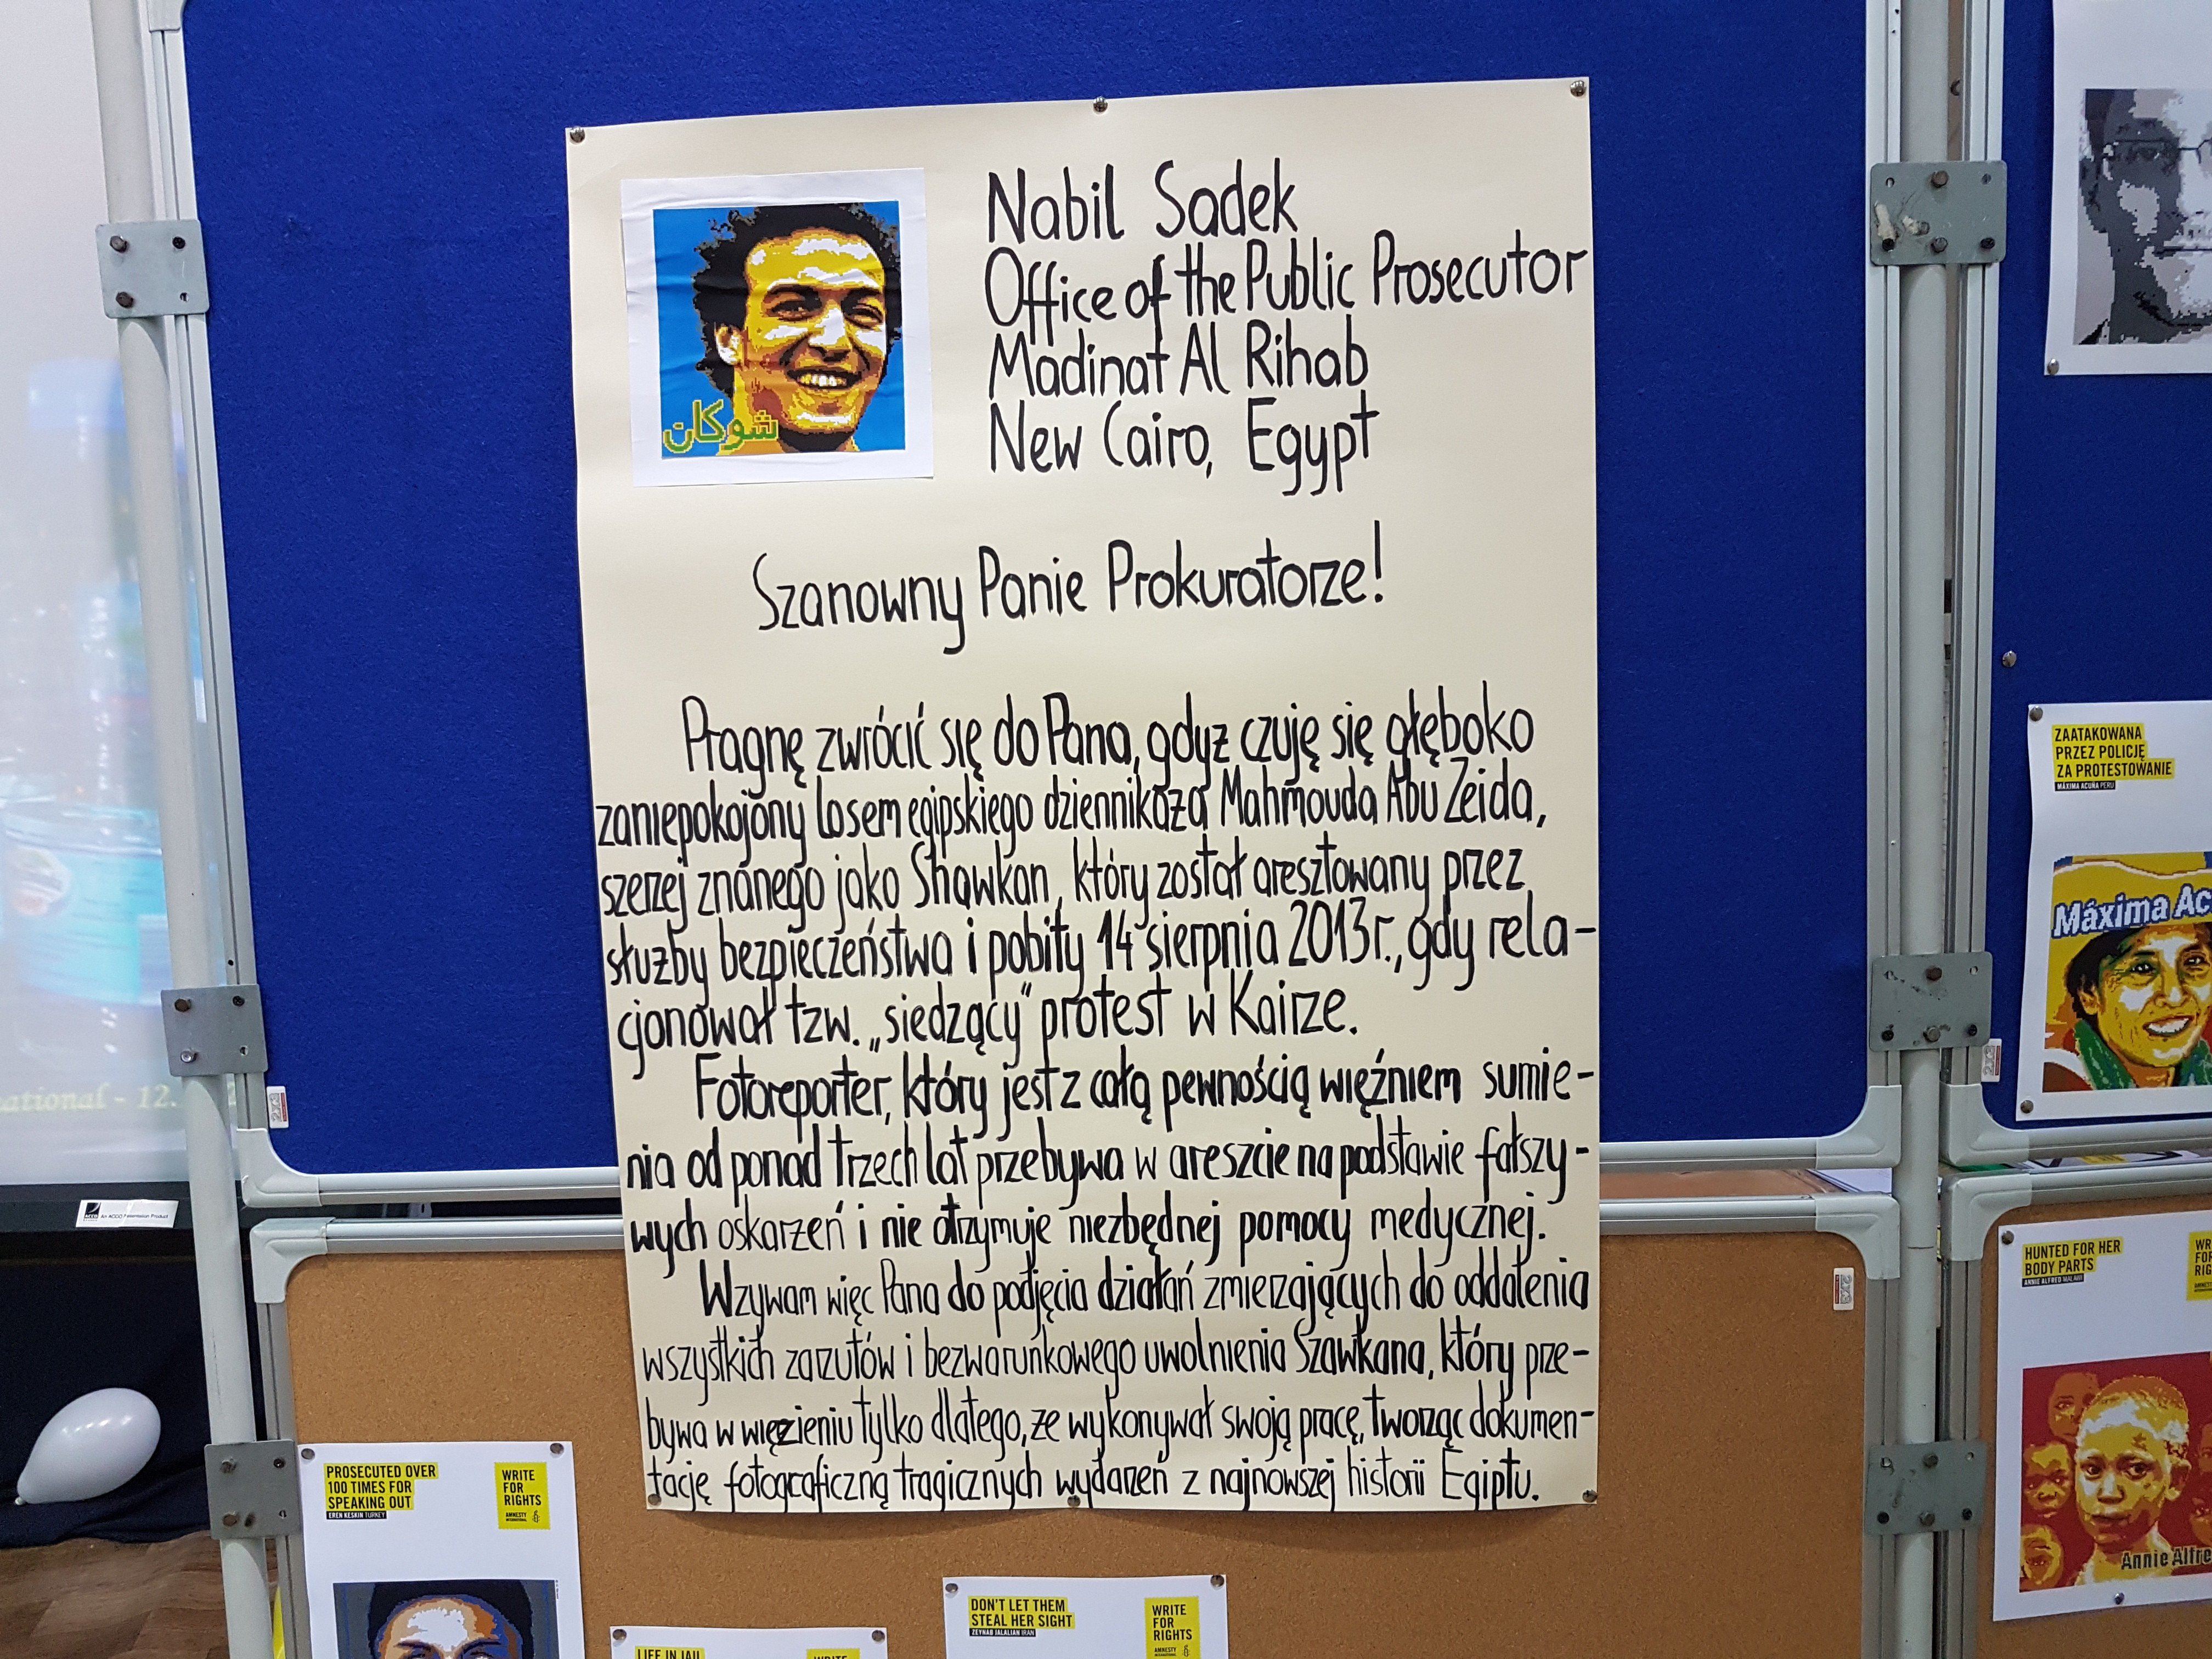 شوكان
Nabil Sadek
Office of the Public Prosecutor
Madinat Al Rihab
New Cairo, Egypt
Szanowny Panie Prokuratorze!
Pragnę zwrócić się do Pana, gdyż czuję się głęboko
zaniepokojony losem egipskiego dziennikaża Mahmouda Abu Zeida,
szerzej znanego jako Shawkan, który został aresztowany przez
służby bezpieczeństwa i pobity 14 sierpnia 2013r., gdy rela-
cjonował tzw. „siedzący" protest w Kairze.
Fotoreporter, który jest z całą pewnością więźniem sumie-
nia od ponad trzech lat przebywa w areszcie na podstawie fałszy-
wych oskarżeń i nie otrzymuje niezbędnej pomocy medycznej.
Wzywam więc Pana do podjęcia działań zmierzających do oddalenia
wszystkich zarzutów i bezwarunkowego uwolnienia Szawkana, który prze-
bywa w więzieniu tylko dlatego, że wykonywał swoją pracę, tworząc dokumen-
tację fotograficzną tragicznych wydarzeń z najnowszej historii Egiptu.
ZAATAKOWANA
PRZEZ POLICJĘ
ZA PROTESTOWANIE
MÁXIMA ACUÑA PERU
Máxima Ac
HUNTED FOR HER
BODY PARTS
ANNIE ALFRED MALAWI
WR
FOR
RIG
Annie Alfre
ational - 12.
An ACCO
Product
PROSECUTED OVER
100 TIMES FOR
SPEAKING OUT
EREN KESKIN TURKEY
WRITE
FOR
RIGHTS
AMNESTY
INTERNATIONAL
LIFE IN JAIL
WRITE
DON'T LET THEM
STEAL HER SIGHT
ZEYNAB JALALIAN IRAN
WRITE
FOR
RIGHTS
AMNESTY
INTERNATIONAL